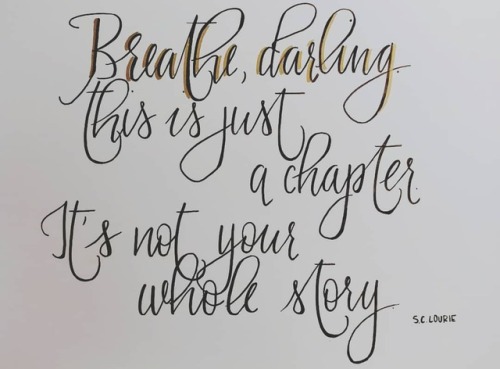 Breathe, darling.
this is just
a chapter.
It's not your
whole story
S.C. LOURIE